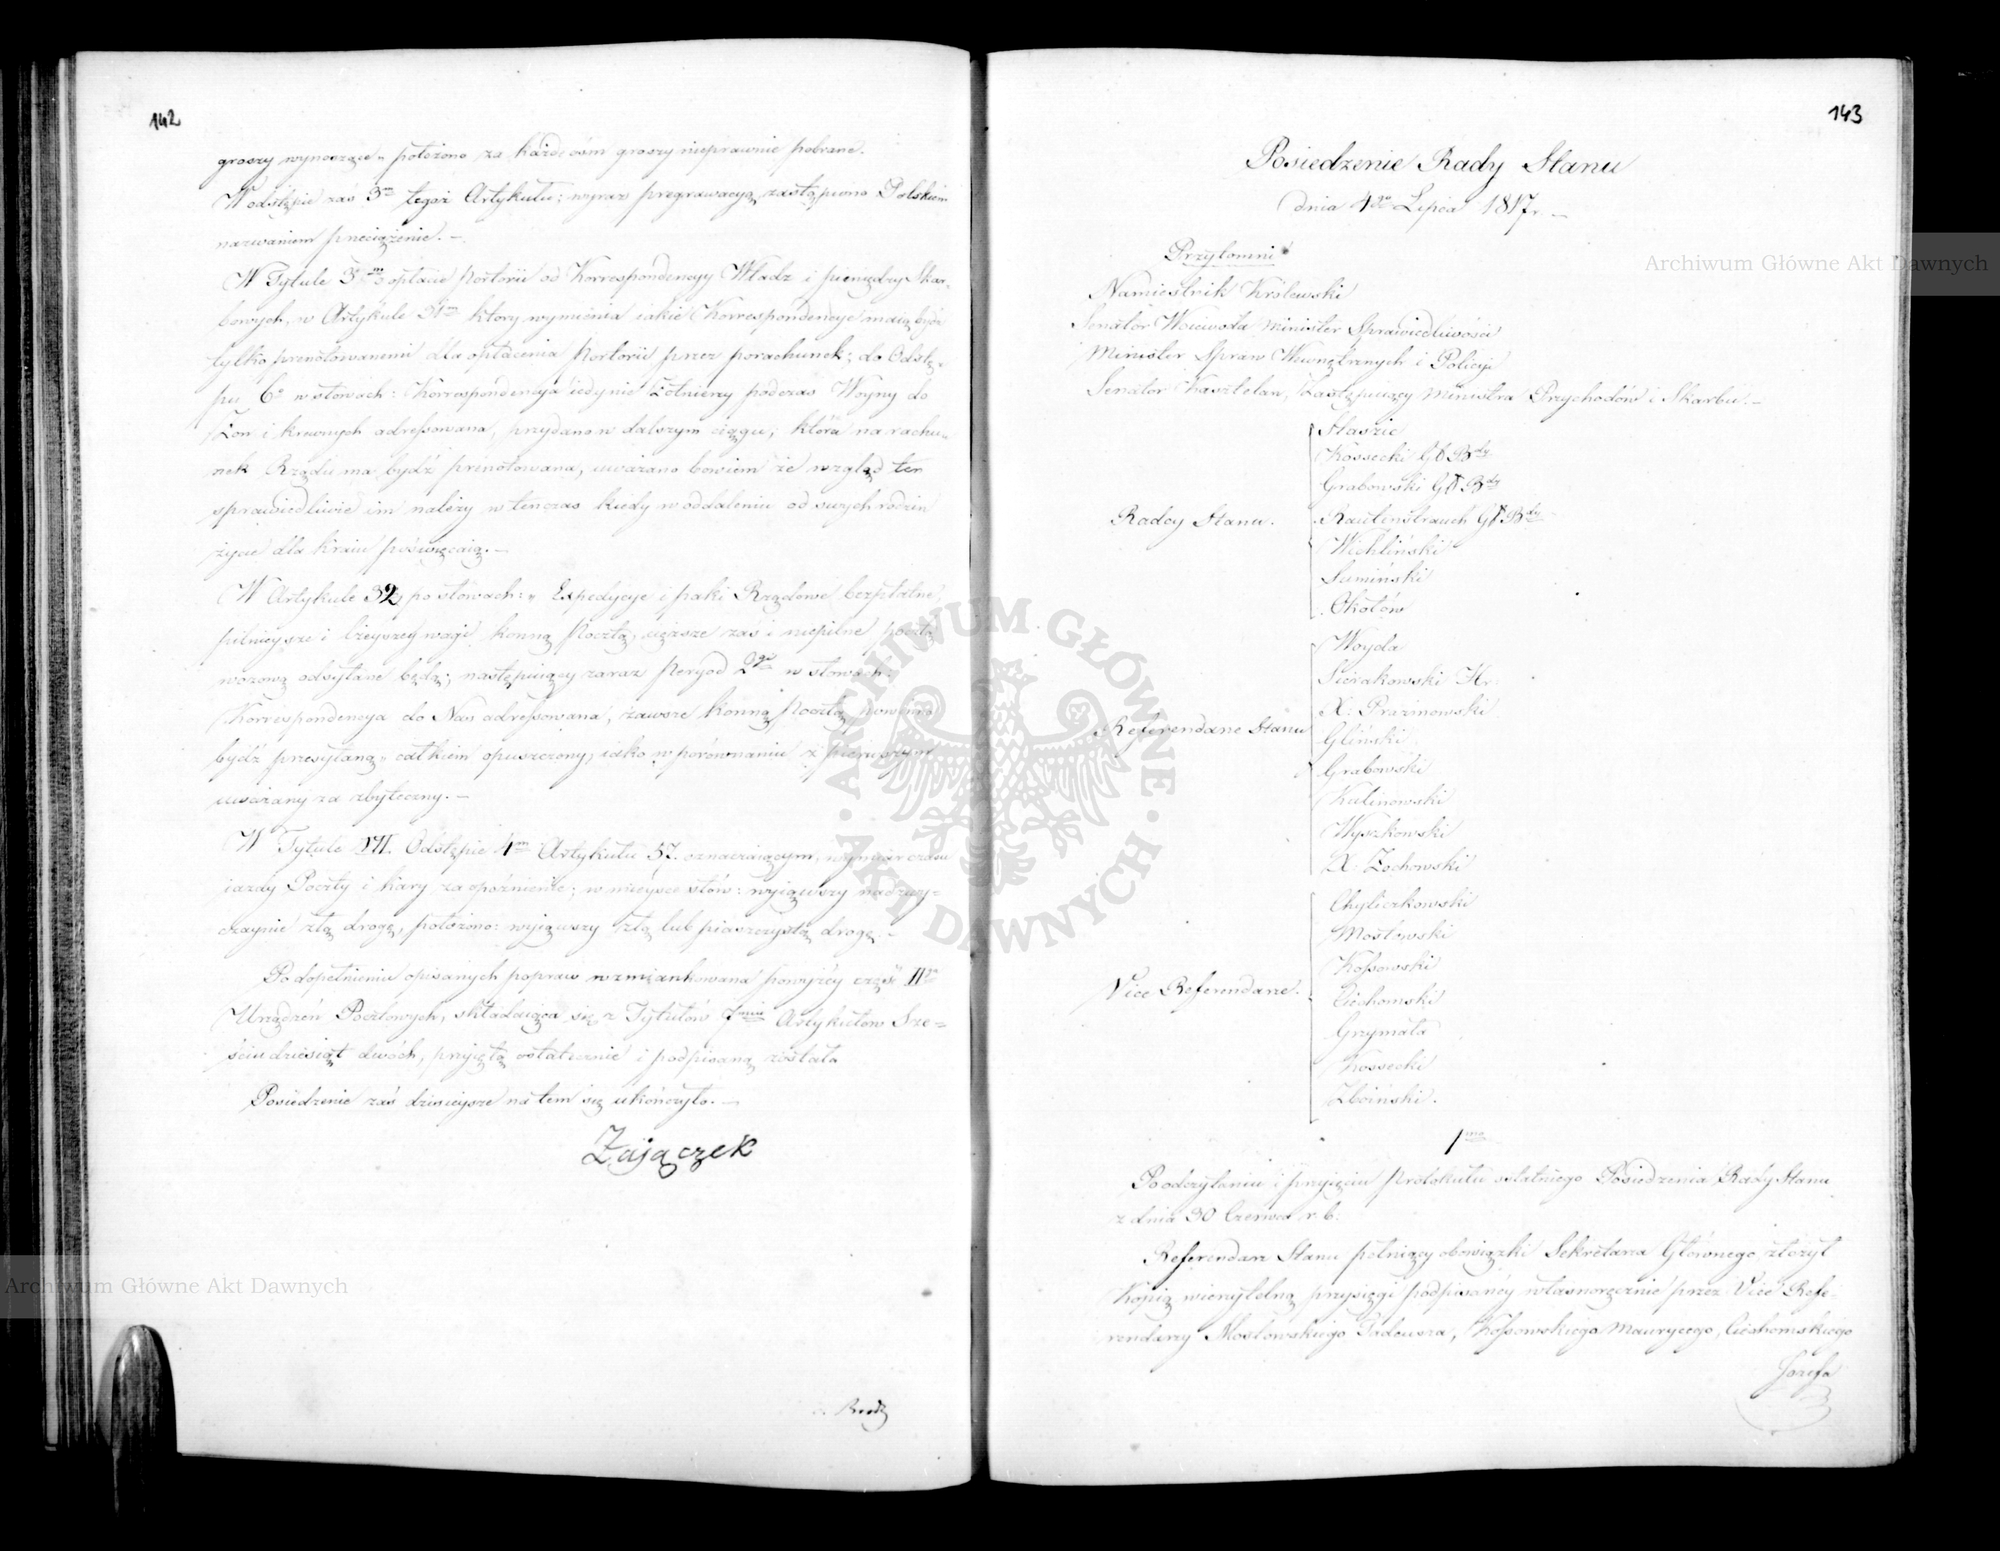 142
groszy wynoszące„ położono za każde ośm groszy nieprawnie pobrane.
W odstępie zaś 3m tegoż Artykułu; wyraz pregrawacyą, zastąpiono Polskiem
nazwaniem przeciążenie. —
W Tytule 3m o opłacie Portorii od Korrespondencyy Władz i pieniędzy Skar-
bowych, w Artykule 31m który wymienia iakie Korrespondencye maią bydź
tylko prenotowanemi dla opłacenia Portorii przez porachunek; do Odstę-
pu 6o w słowach: Korrespondencya iedynie Żołnierzy podczas Woyny do
Żon i krewnych adressowana, przydano w dalszym ciągu; która na rachu-
nek Rządu ma bydź prenotowana, uważano bowiem że wzgląd ten
sprawiedliwie im należy w tenczas kiedy w oddaleniu od swych rodzin
życie dla kraiu poświęcaią. —
W Artykule 32, po słowach: „ Expedycye i paki Rządowe bezpłatne,
pilnieysze i lżeyszey wagi konną Pocztą, cięższe zaś i niepilne pocztą
wozową odsyłane będą; następuiący zaraz Peryod 2gi w słowach:
Korrespondencya do Nas adressowana, zawsze konną Pocztą powinna
bydź przesyłaną„ całkiem opuszczony, iako w porównaniu z pierwszym
uważany za zbyteczny. —
W Tytule VII. Odstępie 4m Artykułu 57. oznaczaiącym, wymiar czasu
iazdy Poczty i kary za opóźnienie; w mieysce słów: wyiąwszy nadzwy-
czaynie złą drogę, położono: wyiąwszy złą lub piaszczystą drogę. —
Po dopełnieniu opisanych popraw wzmiankowana powyżéy część IIga
Urządzeń Pocztowych, składaiąca się z Tytułów 7miu Artykułów Sze-
ściudziesiąt dwóch, przyiętą ostatecznie i podpisaną została
Posiedzenie zaś dzisieysze na tem się ukończyło. —
Zajączek
143
Posiedzenie Rady Stanu
dnia 4go Lipca 1817r. —
Przytomni
Namiestnik Królewski
Senator Woiewoda Minister Sprawiedliwości
Minister Spraw Wewnętrznych i Policyi
Senator Kasztelan, Zastępuiący Ministra Przychodów i Skarbu. —
Radcy Stanu.
Staszic
Kossecki Gł Bdy
Grabowski Gł Bdy
Rautenstrauch Gł Bdy
Wichliński
Sumiński
Okołów
Referendarze Stanu
Woyda
Sierakowski Hr:
X: Prażmowski
Gliński
Grabowski
Kalinowski
Wyszkowski
X: Żochowski
Vice Referendarze.
Chyliczkowski
Mostowski
Kossowski
Ciechomski
Grzymała
Kossecki
Zboiński.
1mo
Po odczytaniu i przyięciu Protokułu ostatniego Posiedzenia Rady Stanu
z dnia 30 Czerwca r. b:
Referendarz Stanu pełniący obowiązki Sekretarza Głównego, złożył
Kopią wierzytelną przysięgi podpisanéy własnoręcznie przez Vice Refe-
rendarzy Mostowskiego Tadeusza, Kossowskiego Maurycego, Ciechomskiego
Józefa
Archiwum Główne Akt Dawnych
Archiwum Główne Akt Dawnych
ARCHIWUM GŁÓWNE AKT DAWNYCH